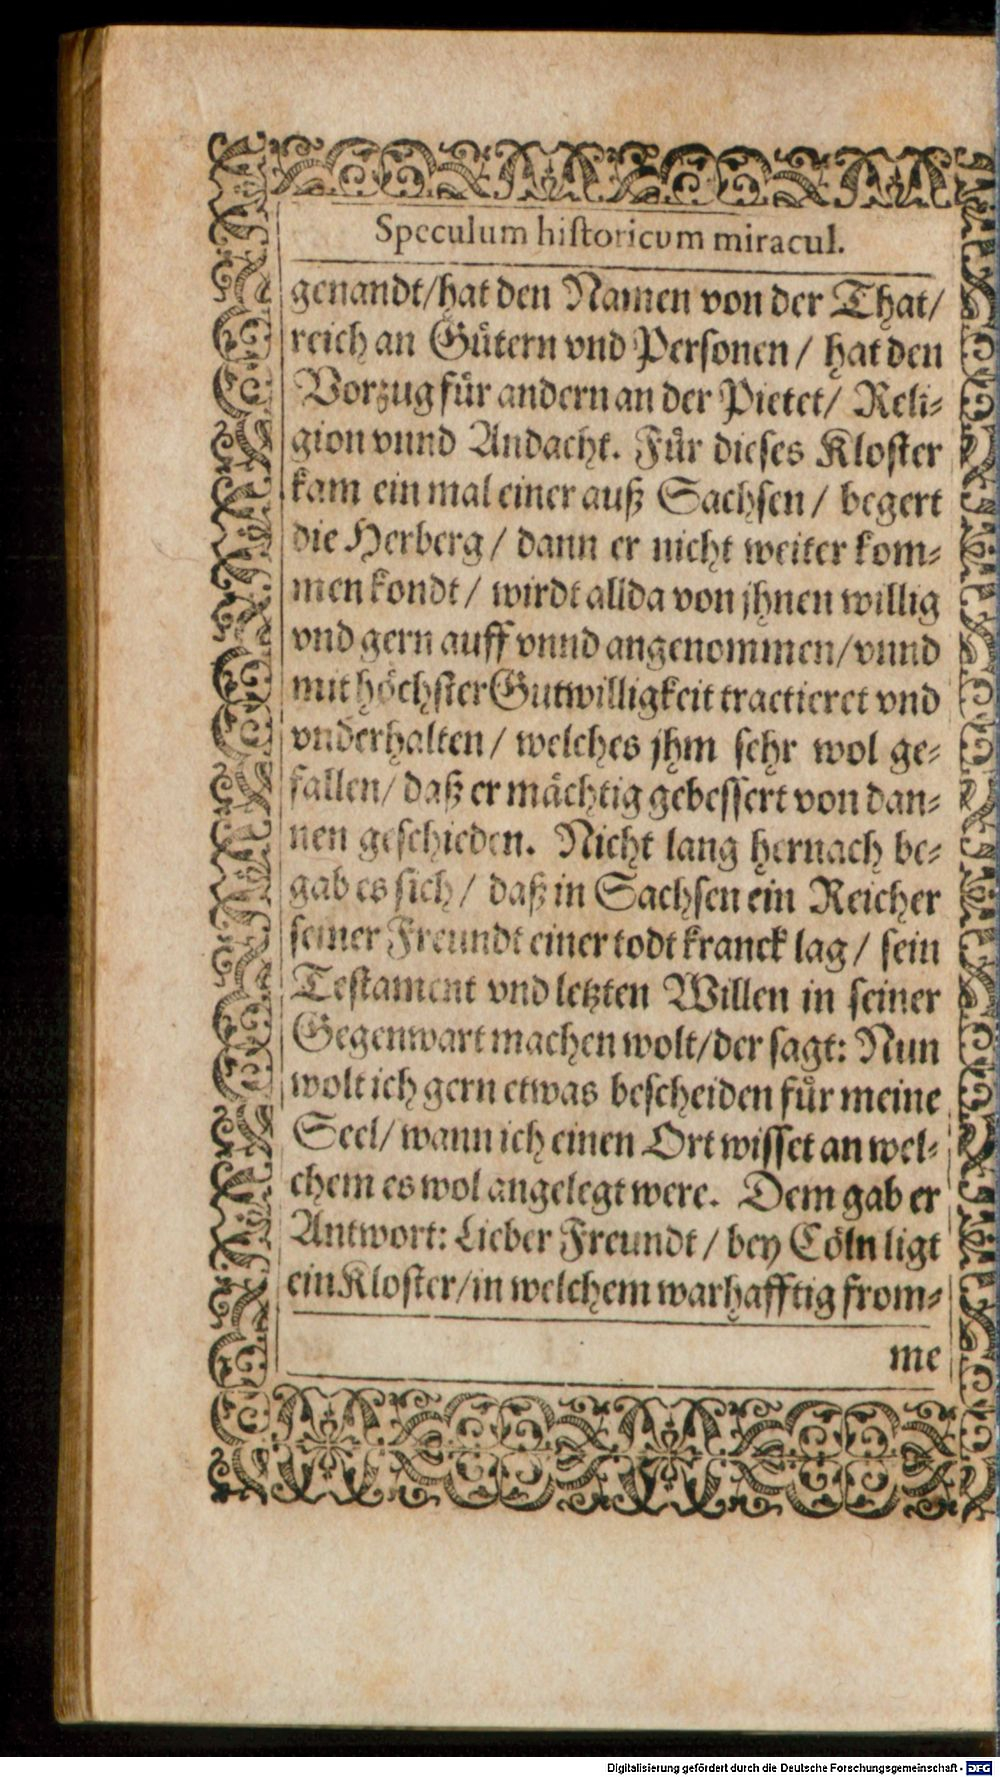 Speculum historicum miracul.
genandt/hat den Namen von der That/
reich an Gůtern vnd Personen / hat den
Vorzug fůr andern an der Pietet/ Reli-
gion vnnd Andacht. Fůr dieses Kloster
kam ein mal einer auß Sachsen / begert
die Herberg / dann er nicht weiter kom-
men kondt / wirdt allda von jhnen willig
vnd gern auff vnnd angenommen/vnnd
mit höchster Gutwilligkeit tractieret vnd
vnderhalten / welches jhm sehr wol ge-
fallen/ daß er mächtig gebessert von dan-
nen geschieden. Nicht lang hernach be-
gab es sich / daß in Sachsen ein Reicher
seiner Freundt einer todt kranck lag / sein
Testament vnd letzten Willen in seiner
Gegenwart machen wolt/der sagt: Nun
wolt ich gern etwas bescheiden fůr meine
Seel/ wann ich einen Ort wisset an wel-
chem es wol angelegt were. Dem gab er
Antwort: Lieber Freundt / bey Cöln ligt
ein Kloster/in welchem warhafftig from-
me
Digitalisierung gefördert durch die Deutsche Forschungsgemeinschaft - DFG